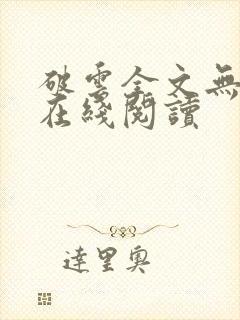 破雲全文無
在綫閱讀
達里奧